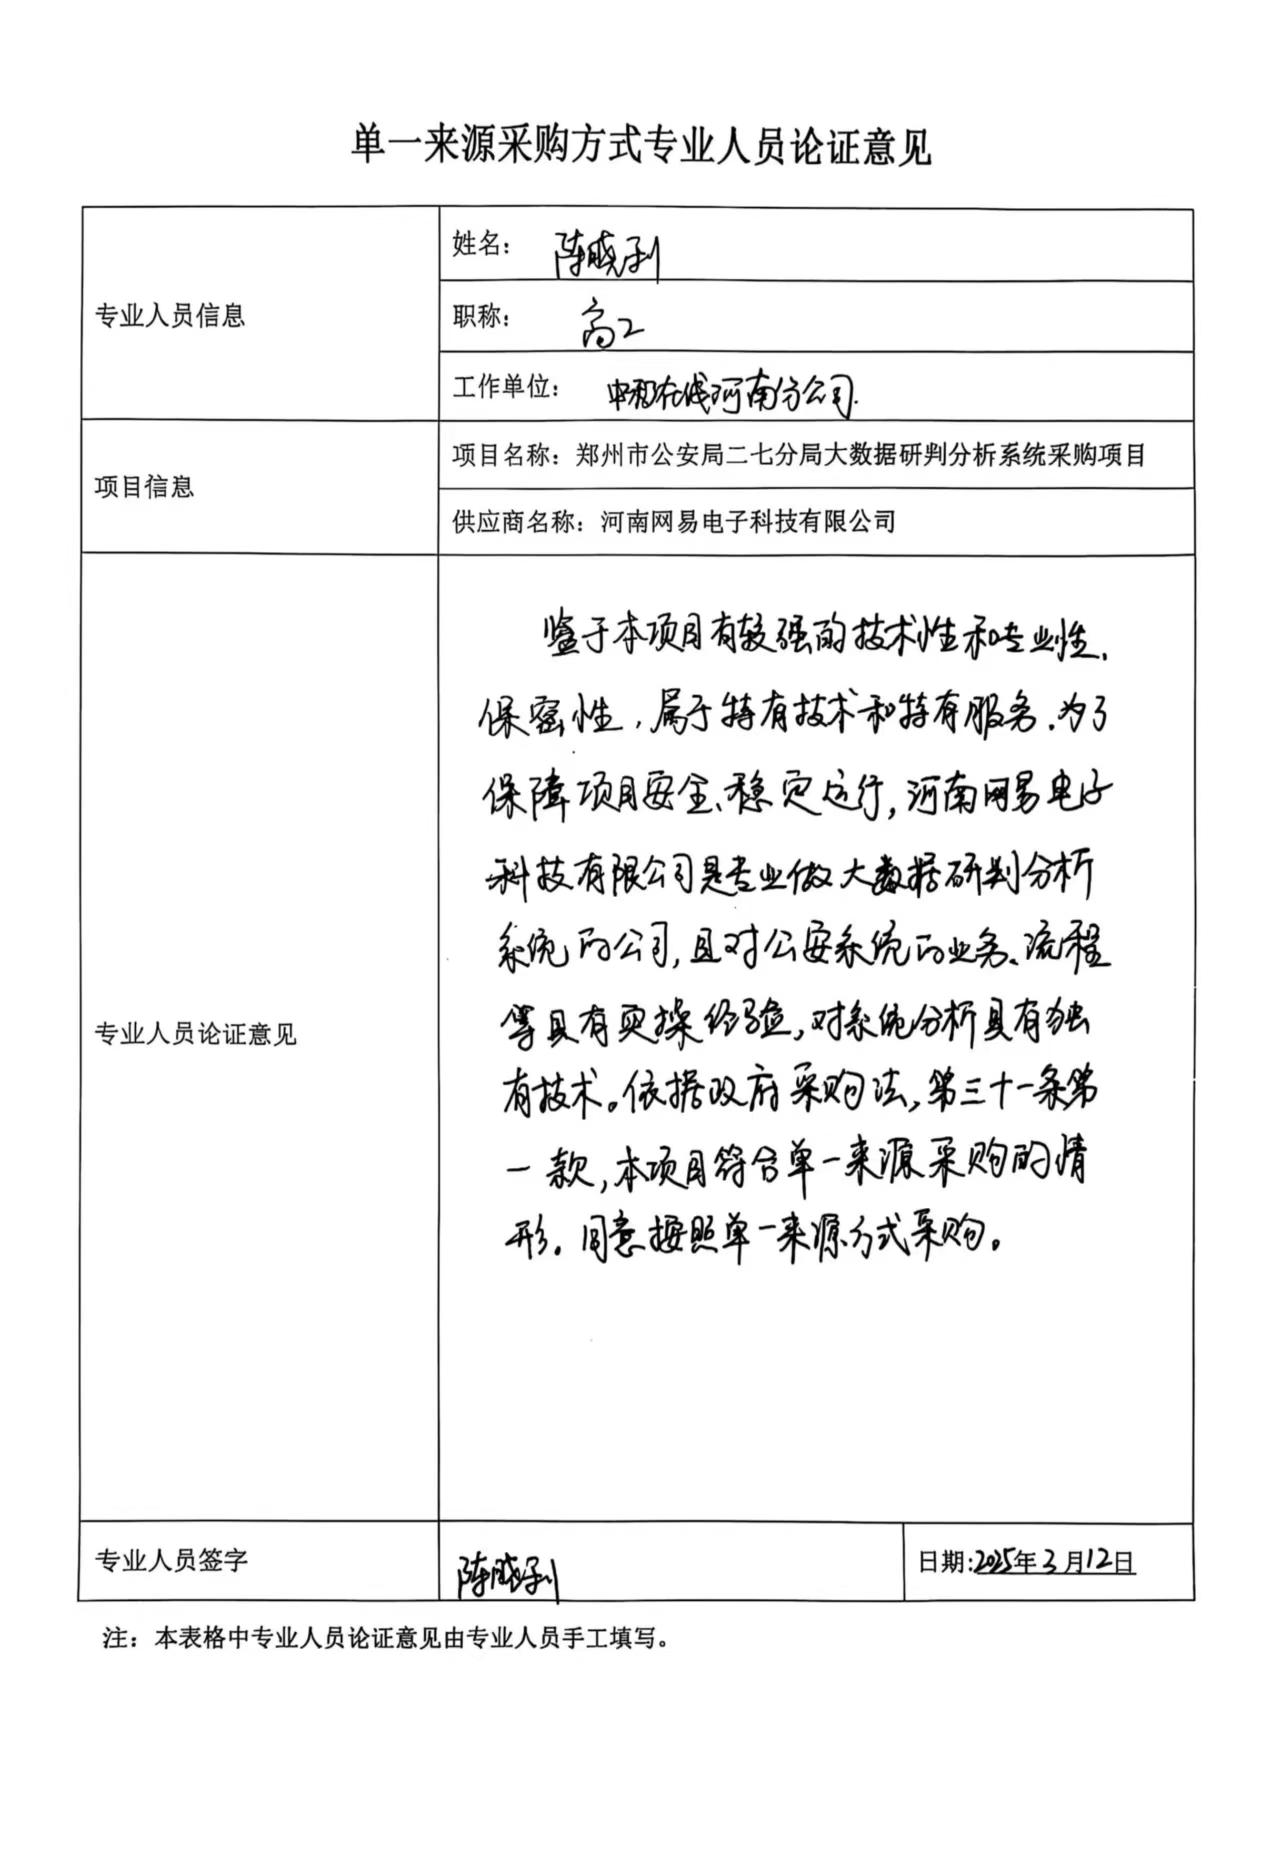 单一来源采购方式专业人员论证意见
专业人员信息
姓名：陈晓利
职称：高工
工作单位：中移在线河南分公司.
项目信息
项目名称：郑州市公安局二七分局大数据研判分析系统采购项目
供应商名称：河南网易电子科技有限公司
专业人员论证意见
鉴于本项目有较强的技术性和专业性、
保密性，属于特有技术和特有服务.为了
保障项目安全、稳定运行，河南网易电子
科技有限公司是专业做大数据研判分析
系统的公司，且对公安系统的业务、流程
等具有实操经验，对系统分析具有独
有技术。依据政府采购法，第三十一条第
一款，本项目符合单一来源采购的情
形。同意按照单一来源方式采购。
专业人员签字
陈晓利
日期:2025年3月12日
注：本表格中专业人员论证意见由专业人员手工填写。